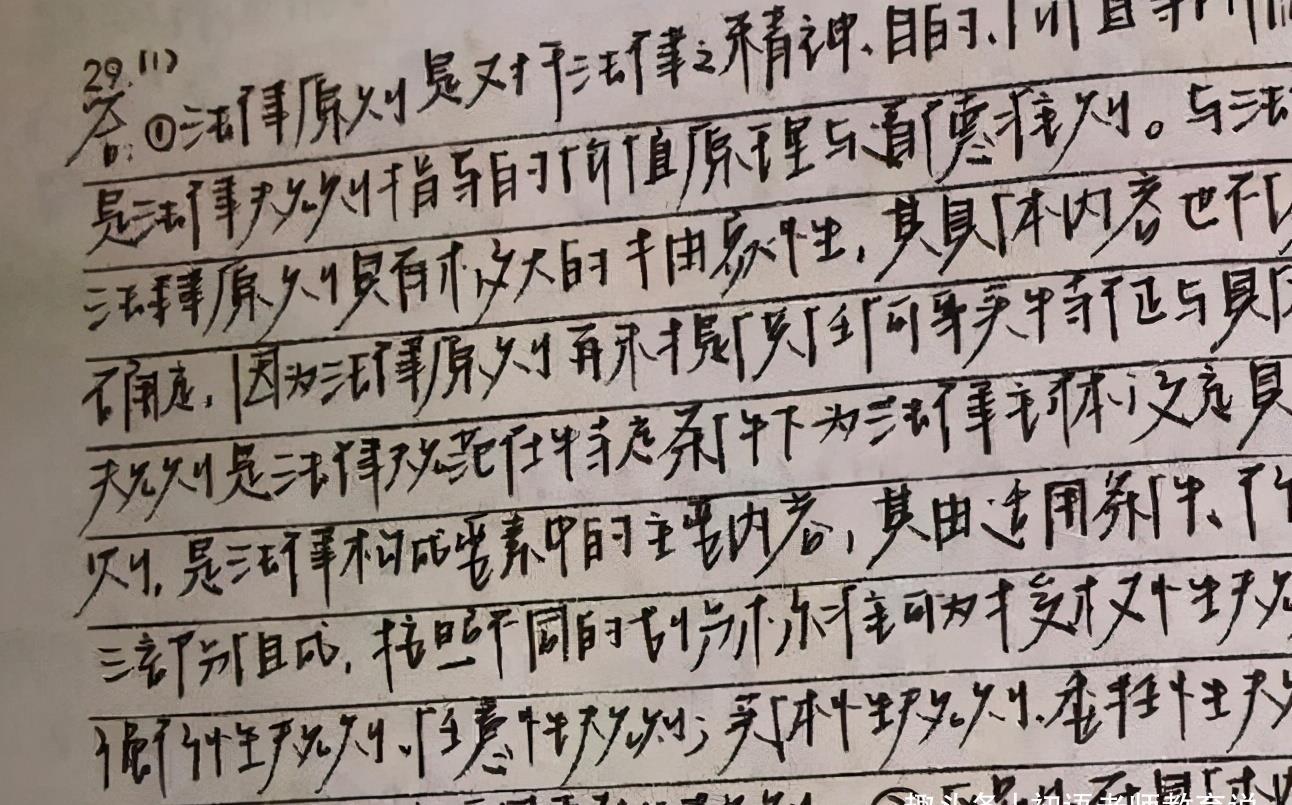 29.(1)
答:①法律原则是对于法律之精神、目的、价值等
是法律规则指导的价值原理与道德准则。与法
法律原则具有极大的抽象性,其具体内容也不
确定,因为法律原则再未提供任何事实特征与具
规则是法律规范在特定条件下为法律主体设定具
则,是法律构成要素中的主要内容,其由适用条件、行
三部分组成,按照不同的划分标准可为授权性规
强行性规则、任意性规则;实体性规则、委任性规